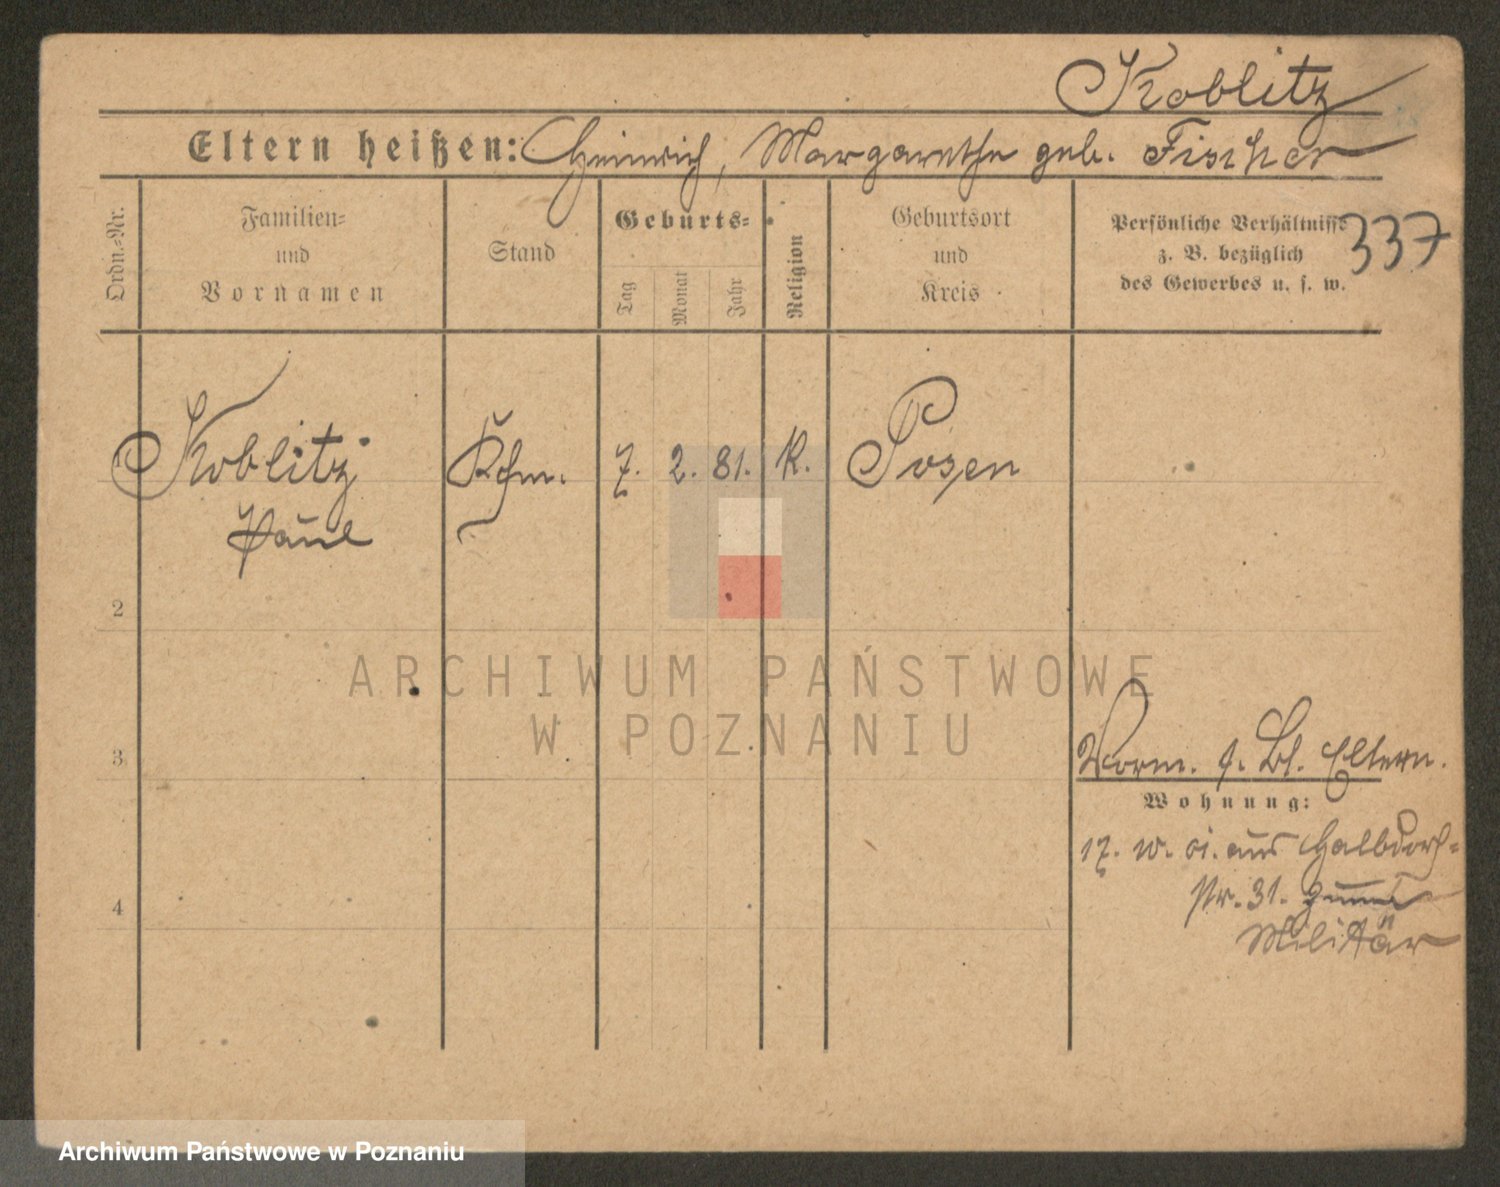 Koblitz
Eltern heißen: Heinrich, Margarethe geb. Fischer
Ordn.-Nr.
Familien-
und
Vornamen
Stand
Geburts-
Tag
Monat
Jahr
Religion
Geburtsort
und
Kreis
Persönliche Verhältnisse
z. B. bezüglich
des Gewerbes u. s. w.
337
1 Koblitz Kfm. 7. 2. 81. K. Posen
Paul
2
3
4
ARCHIWUM PAŃSTWOWE
W POZNANIU
Vorm. s. Bl. Eltern.
Wohnung:
17. 10. 01. aus Halbdorf-
str. 31. zum
Militär
Archiwum Państwowe w Poznaniu